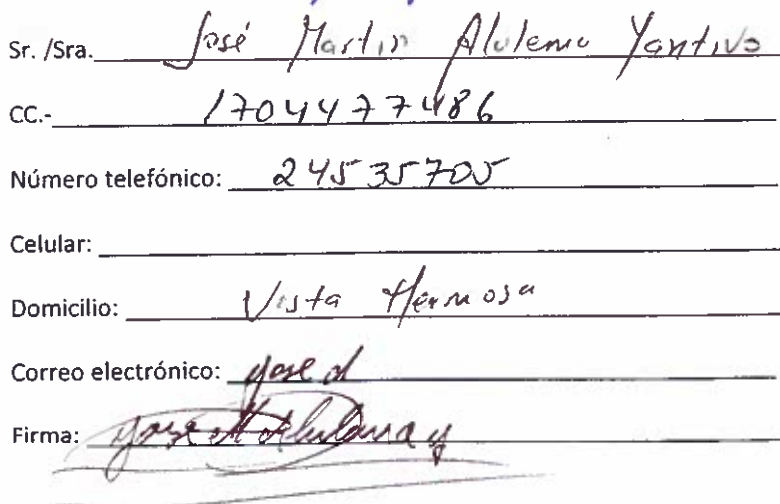 Sr. /Sra. José Martin Alulema Yantivo
CC.- 1704477486
Número telefónico: 24535705
Celular:
Domicilio: Vista Hermosa
Correo electrónico: jose
Firma: jose